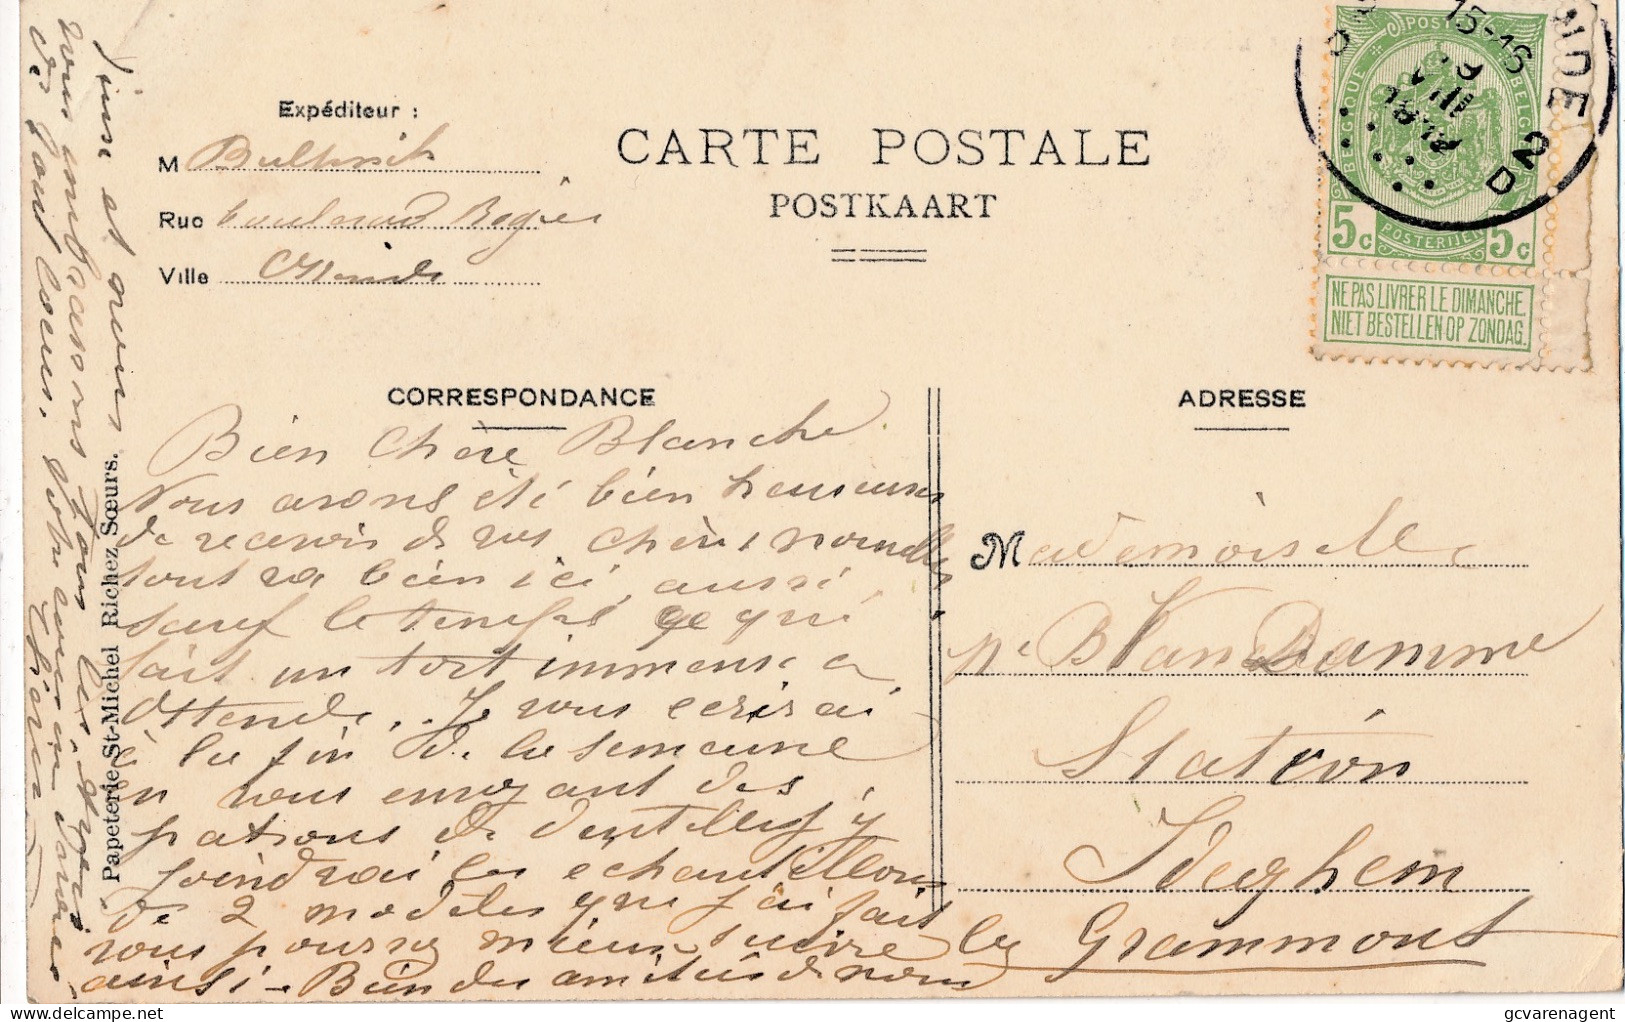 Expéditeur :
M
Rue boulevard Rogier
Ville Ostende
CARTE POSTALE
POSTKAART
POSTES
BELGIQUE
BELGIË
15-16
NDE
2
D
5c POSTERIJEN 5c
NE PAS LIVRER LE DIMANCHE
NIET BESTELLEN OP ZONDAG.
CORRESPONDANCE
Bien chère Blanche
Nous avons été bien heureuses
de recevoir de vos chères nouvelles
tout va bien ici, aussi
sauf le temps qui
fait un tort immense à
Ostende. Je vous écrirai
à la fin de la semaine
en vous envoyant des
patrons de dentelles j'y
joindrai les échantillons
de 2 modèles que j'ai fait
vous pourrez mieux suivre
ainsi - Bien des amitiés de nous
vous embrassons tous les
de tout cœur. Votre cousine
Papeterie St-Michel Richez Sœurs.
ADRESSE
Mademoiselle
B Van Damme
Station
Ideghem
les Grammont
gcvarenagent